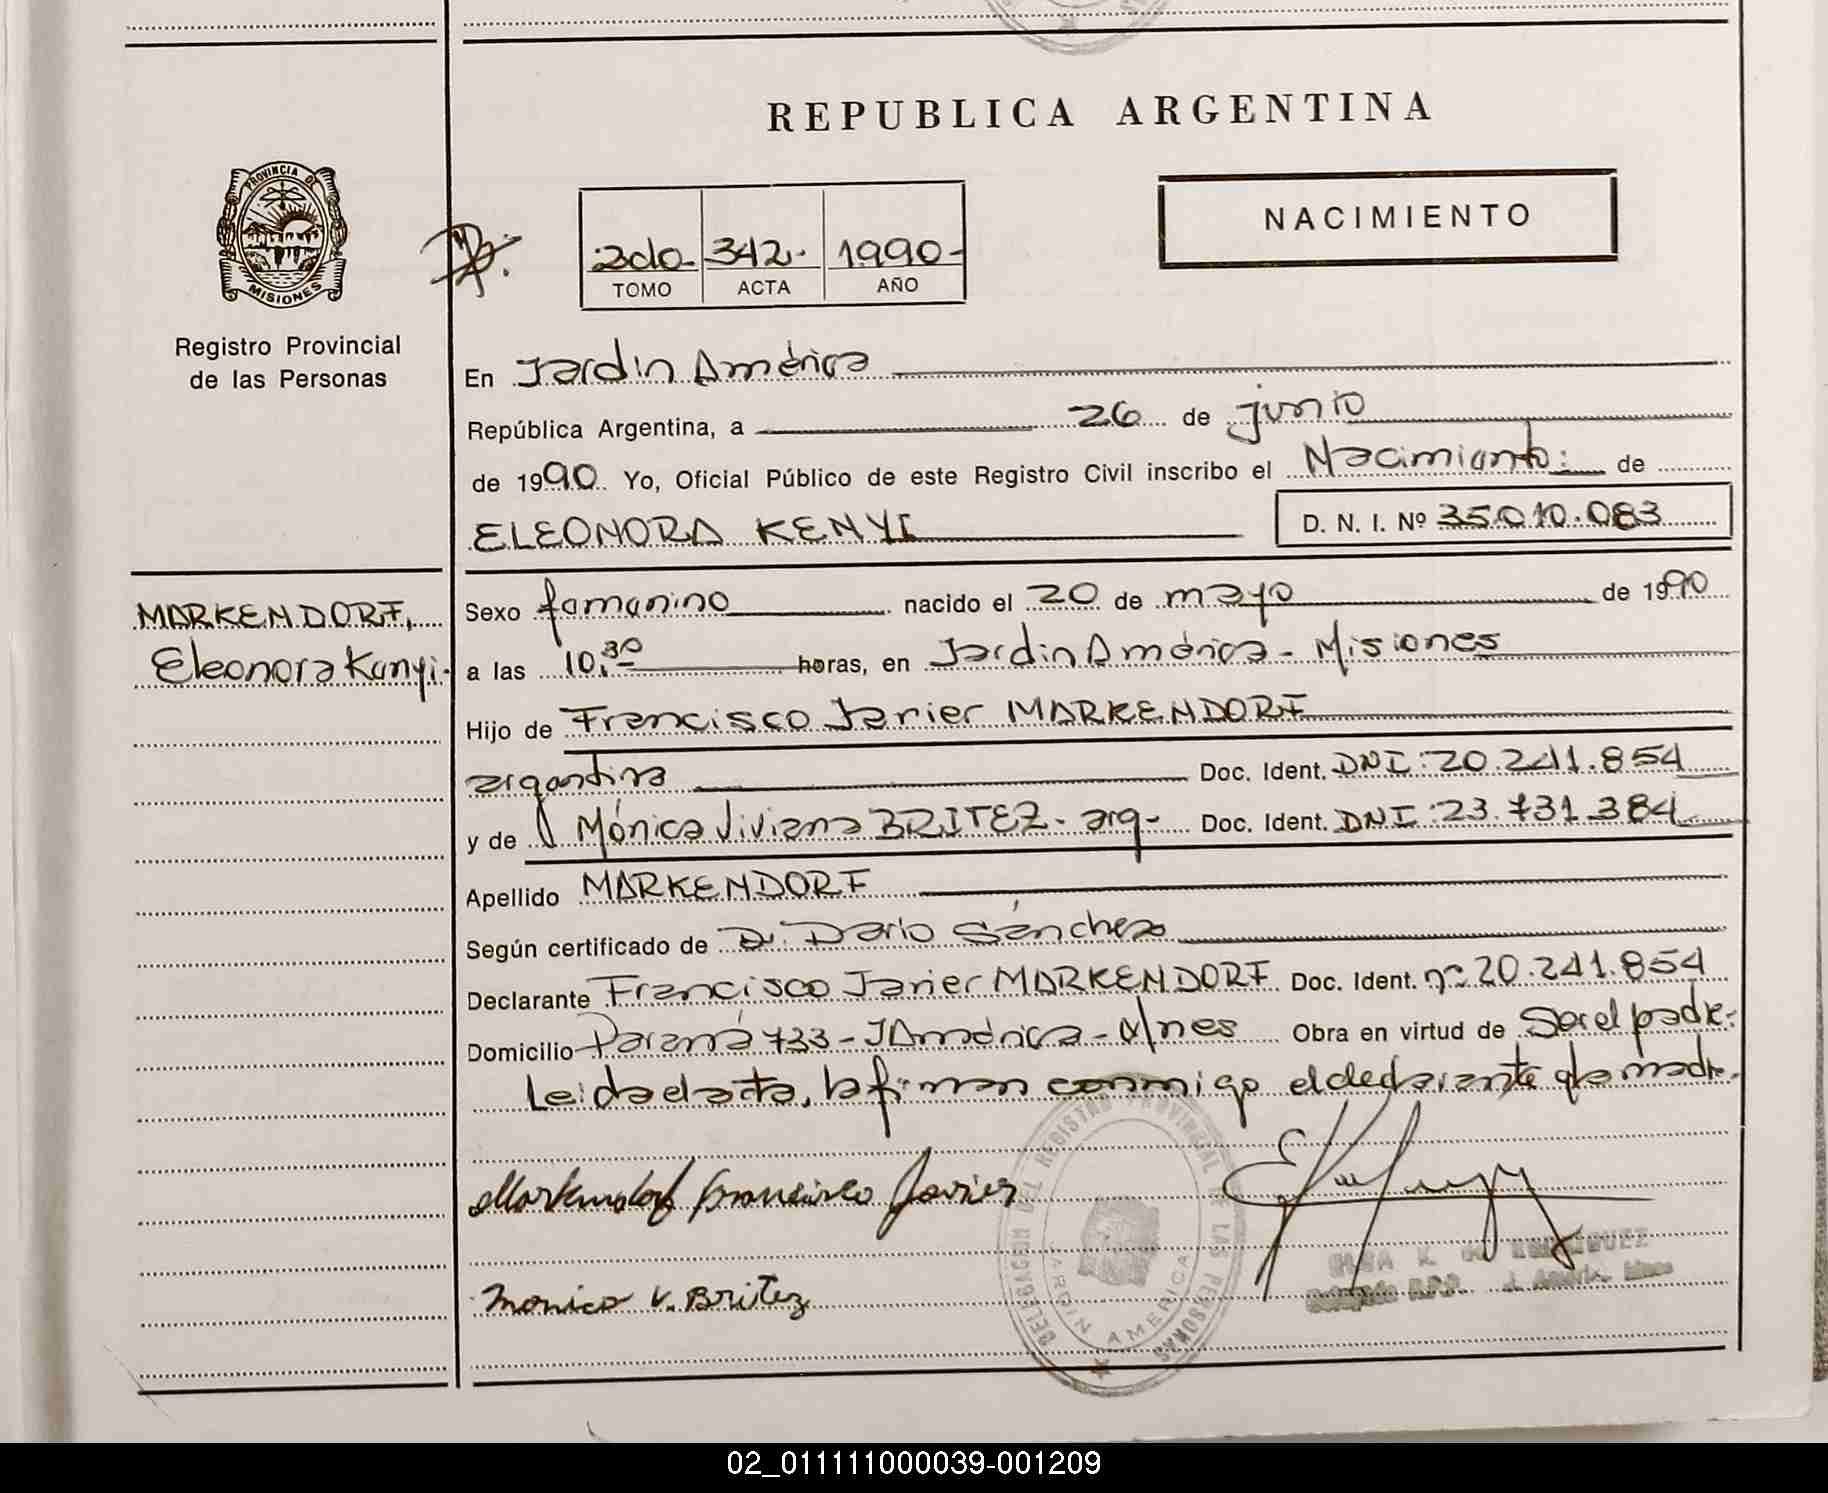 REPUBLICA ARGENTINA
PROVINCIA DE
MISIONES
Registro Provincial
de las Personas
2do.
342.
1990-
TOMO
ACTA
AÑO
NACIMIENTO
En Jardín América
República Argentina, a 26 de junio
de 1990. Yo, Oficial Público de este Registro Civil inscribo el Nacimiento: de
ELEONORA KENYI D. N. I. Nº 35.010.083
MARKENDORF,
Eleonora Kenyi.
Sexo femenino nacido el 20 de mayo de 1990
a las 10.30 horas, en Jardín América - Misiones
Hijo de Francisco Javier MARKENDORF
argentina Doc. Ident. DNI: 20.241.854
y de Mónica Viviana BRITEZ - arg- Doc. Ident. DNI: 23.731.384
Apellido MARKENDORF
Según certificado de Dr. Darío Sánchez
Declarante Francisco Javier MARKENDORF Doc. Ident. nº 20.241.854
Domicilio Paraná 733 - J América - M/nes Obra en virtud de Ser el padre-
Leída el acta, la firman conmigo el declarante y la madre.
Markendorf Francisco Javier
Monica V. Britez
DELEGACION DEL REGISTRO PROVINCIAL DE LAS PERSONAS
JARDIN AMERICA
02_011111000039-001209